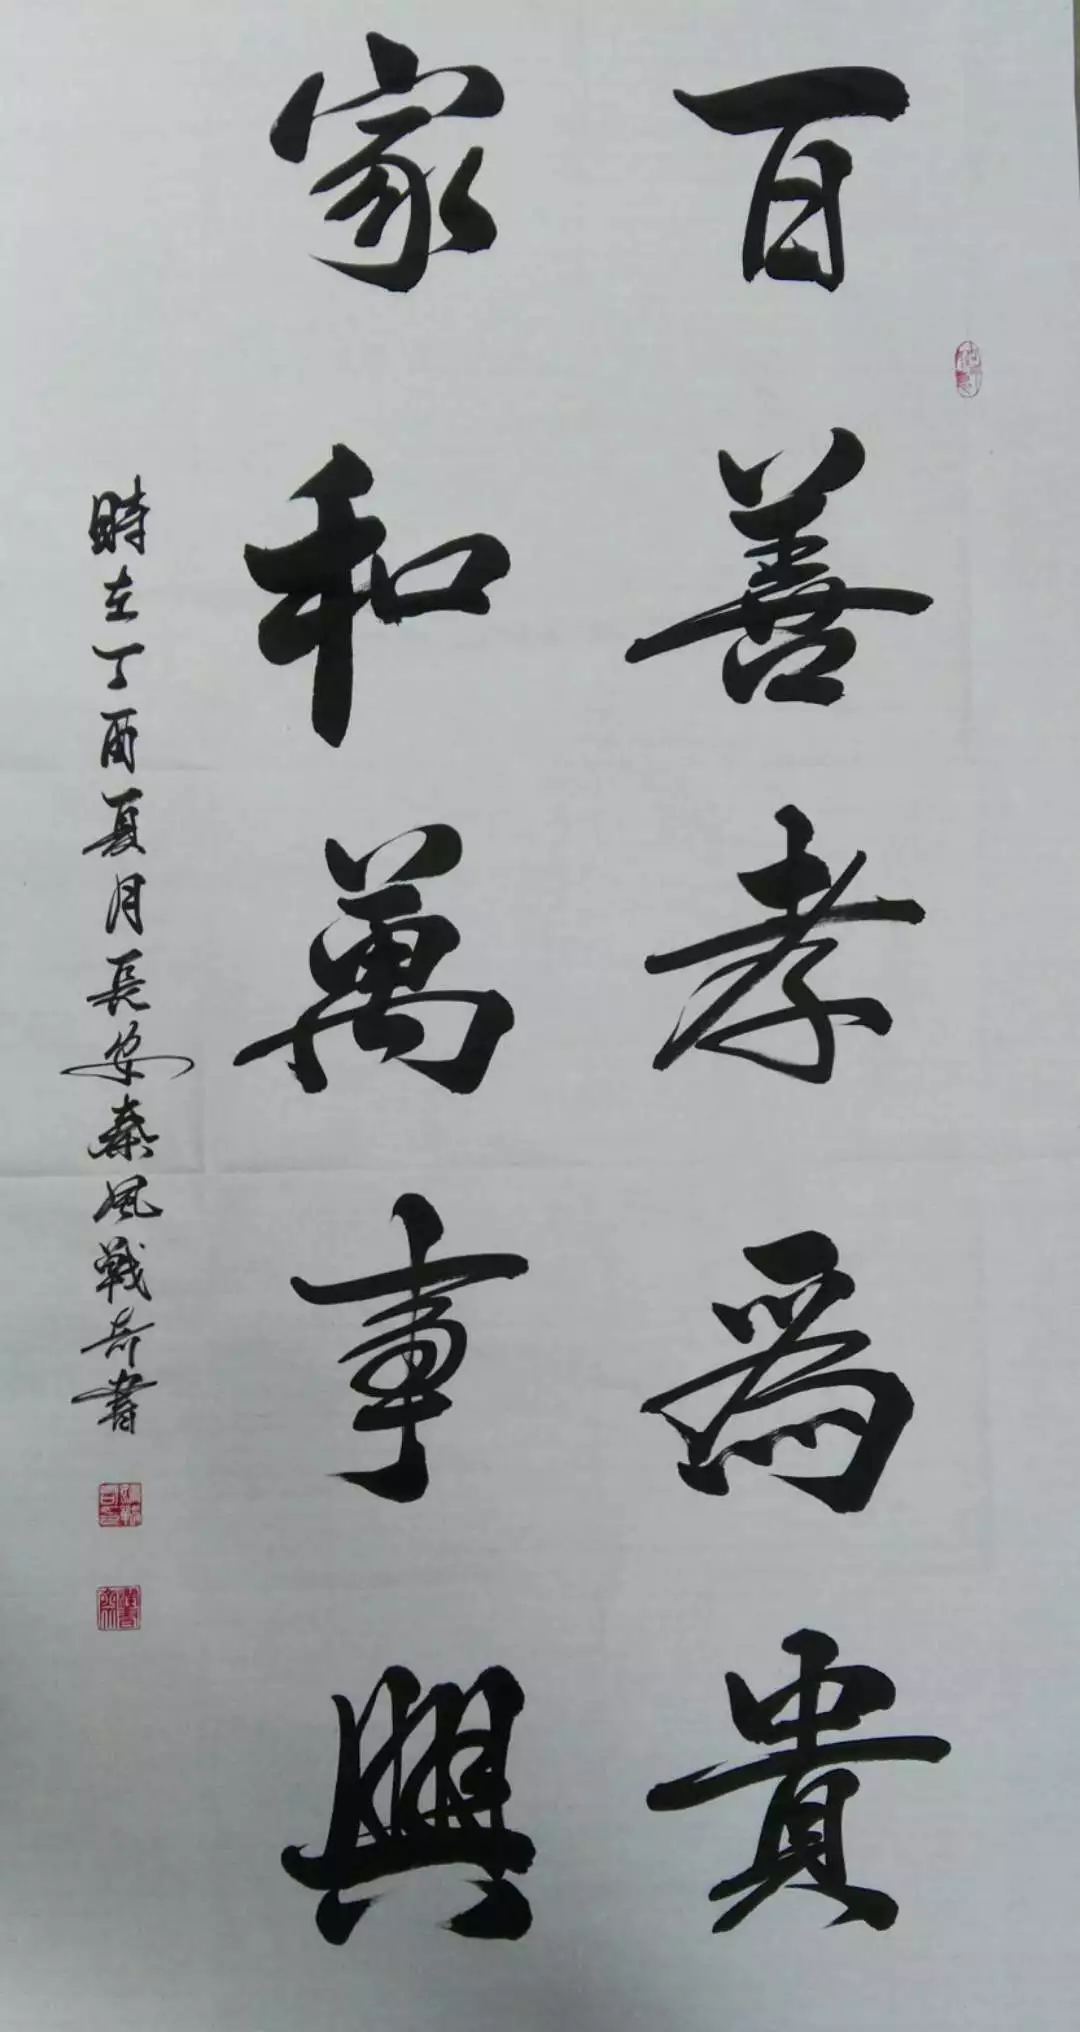 百善孝為貴
家和萬事興
時在丁酉夏月長安秦風戰奇書